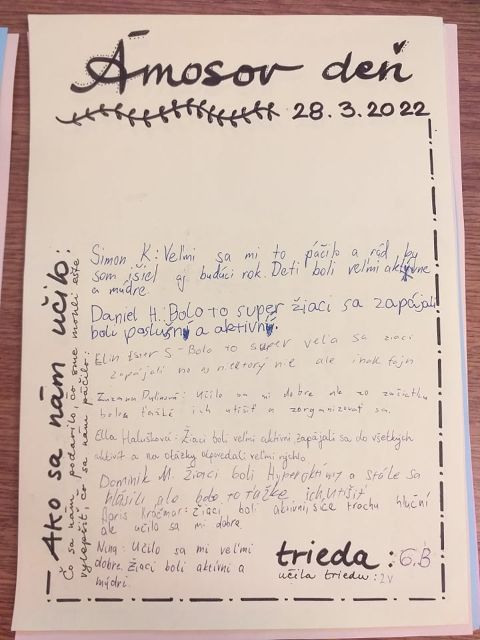 Ámosov deň
28.3.2022
Ako sa nám učilo:
Čo sa nám podarilo, čo sme mohli ešte
vylepšiť, čo sa nám páčilo:
Simon K: Veľmi sa mi to páčilo a rád by
som išiel aj budúci rok. Deti boli veľmi aktívne
a múdre.
Daniel H.: Bolo to super žiaci sa zapájali
boli poslušný a aktivný.
S - Bolo to super veľa sa žiaci
zapájali no niektorý nie ale inak fajn
Zuzana: Učilo sa mi dobre ale zo začiatku
bolo ťažké ich utíšiť a zorganizovať sa.
Ella Halušková: Žiaci boli veľmi aktívni, zapájali sa do všetkých
aktivít a na otázky odpovedali veľmi rýchlo.
Dominik M. Žiaci boli Hyperaktívny a stále sa
hlásili ale bolo to ťažké ich utíšiť
Boris Kračmar: Žiaci boli aktívni, síce trochu hluční
ale učilo sa mi dobre.
Nina: Učilo sa mi veľmi
dobre. Žiaci boli aktívni a
múdri.
trieda: 6.B
učila triedu: 2.V